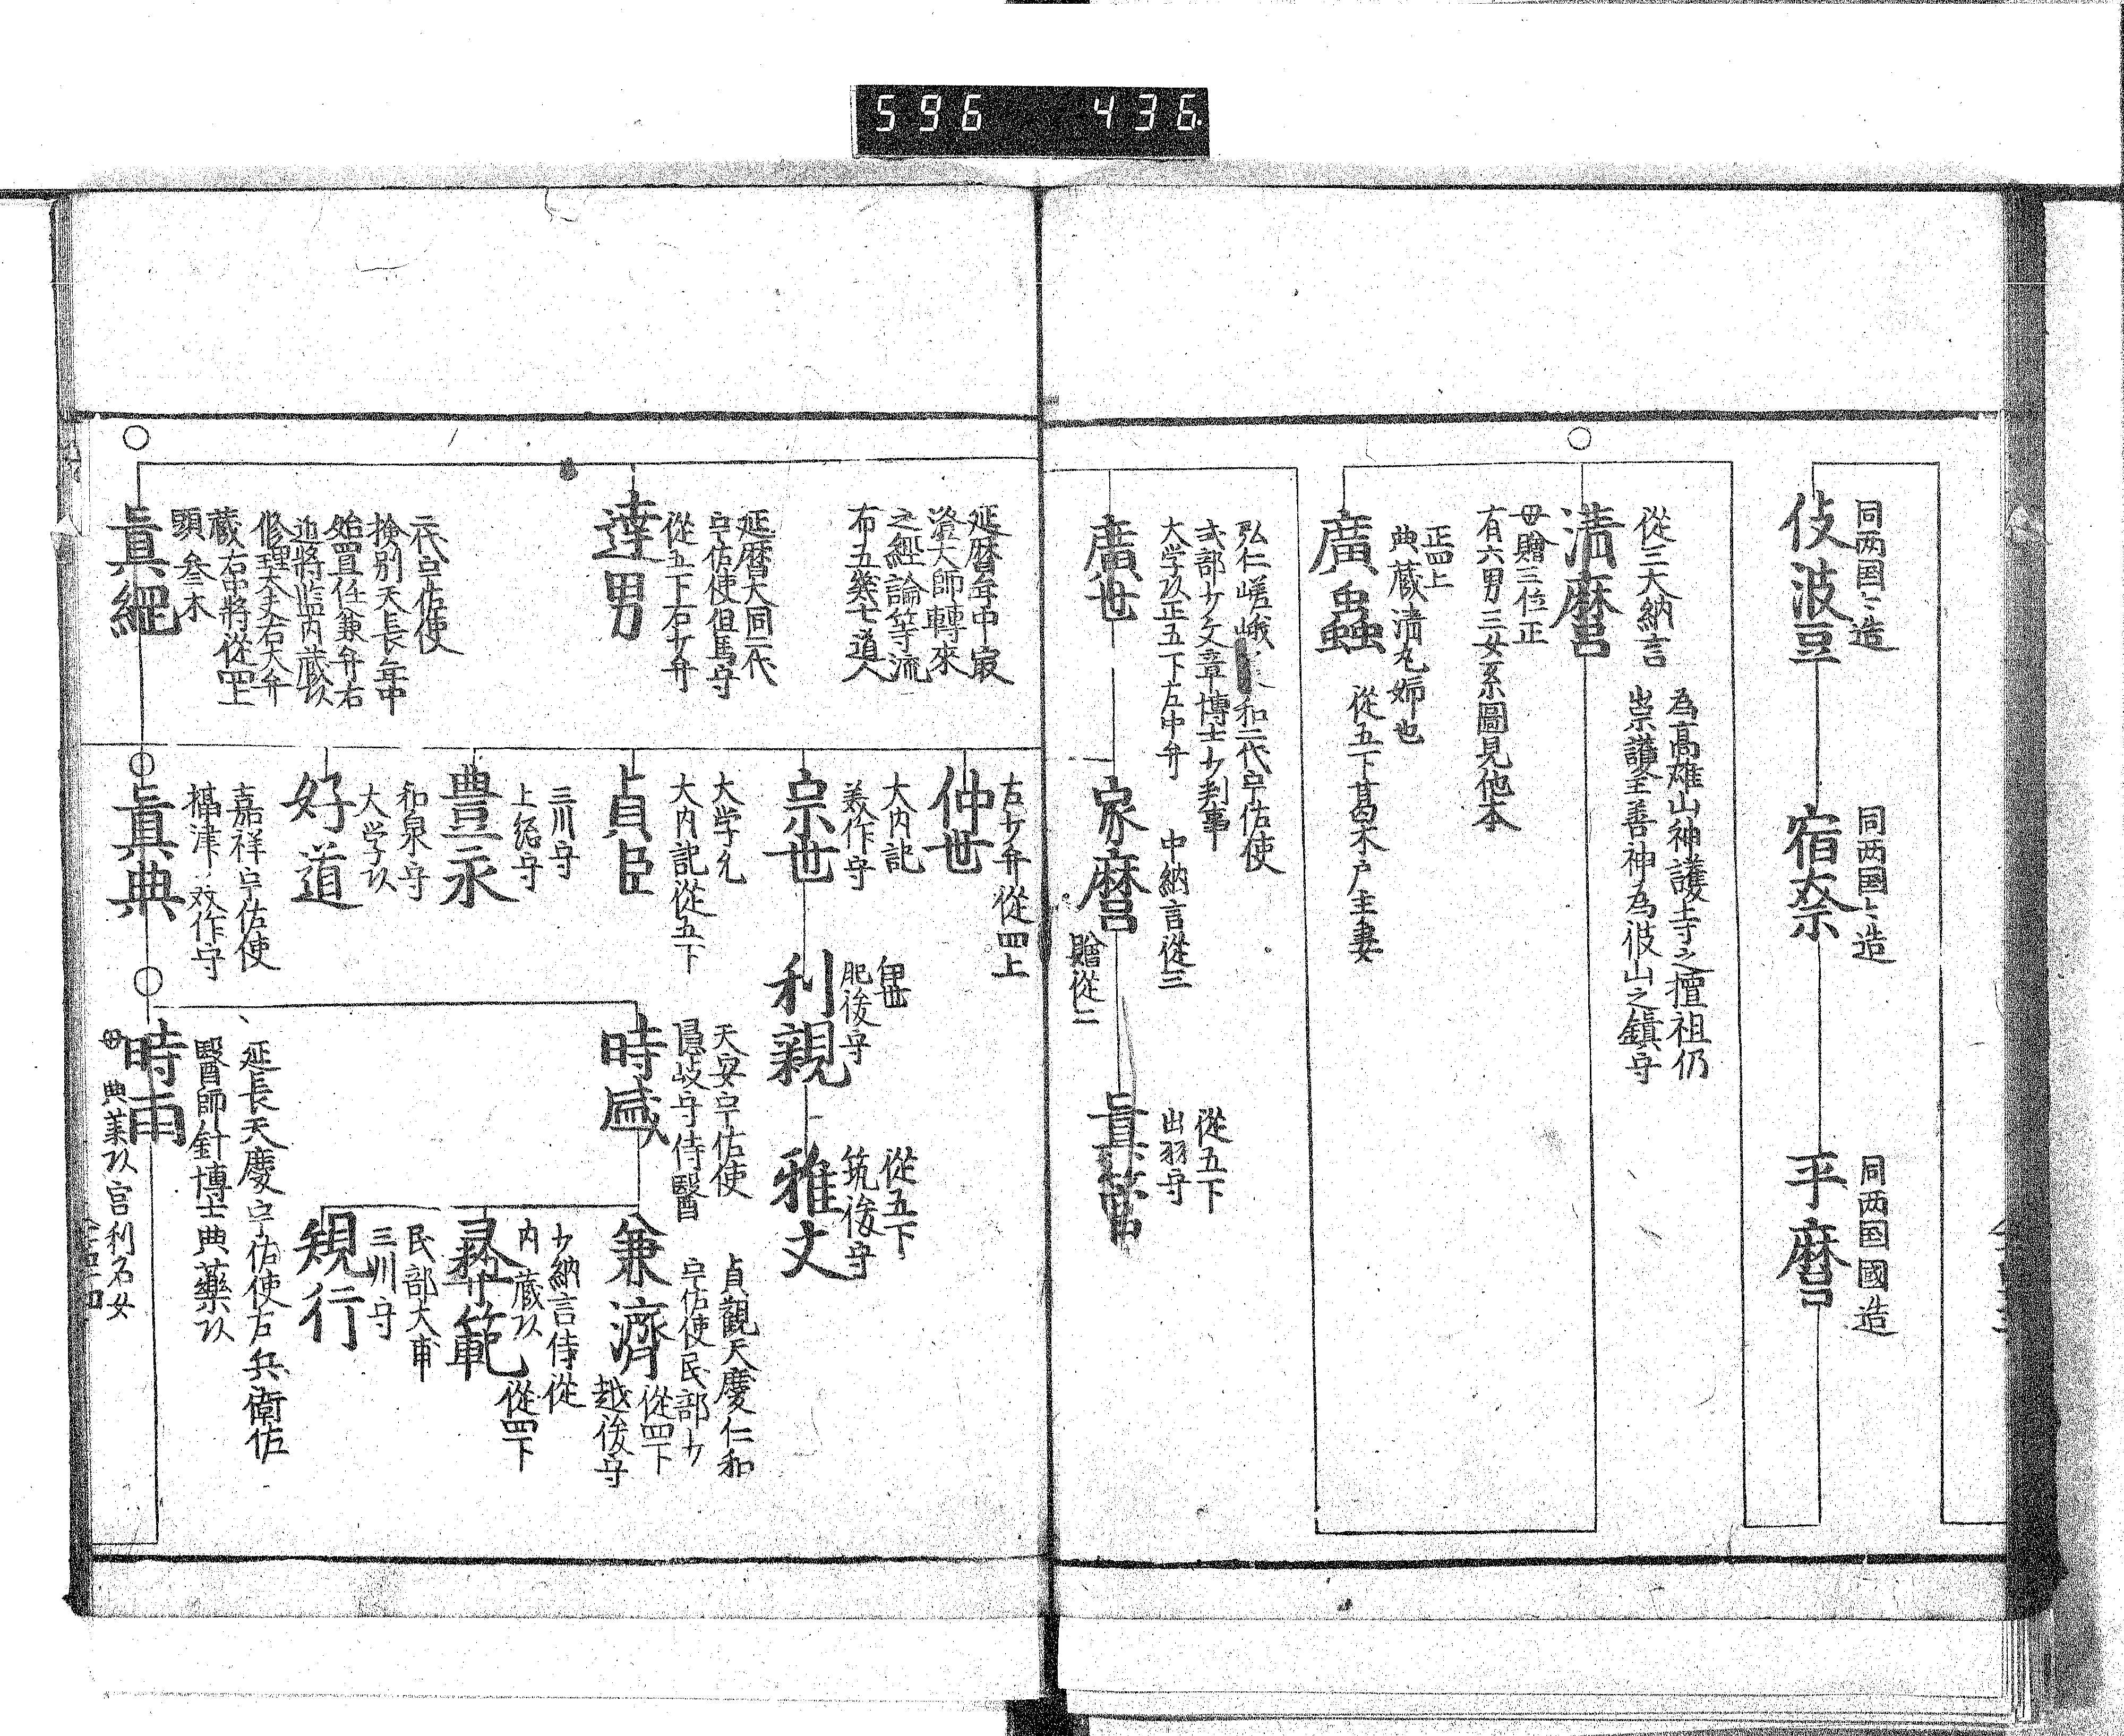 596 436
同两国〻造
伎波豆
同两国〻造
宿奈
同两国國造
平麿
從三大納言
為高雄山神護寺之擅祖仍
崇護全善神為彼山之鎮守
清麿
母贈三位正
有六男三女系圖見他本
正四上
典蔵清丸姉也
廣蟲
從五下葛木戸主妻
弘仁嵯峨
和二代宇佐使
式部少文章博士少判事
大学以正五下左中弁
廣世
中納言從三
家麿
贈從二
從五下
出羽守
眞菅
延暦年中最
澄大師轉來
之經論等流
布五幾七道
延暦大同二代
宇佐使但馬守
從五下右少弁
達男
二代宇佐使
撿別天長年中
始置任兼弁右
近將監内蔵以
修理大夫右大弁
蔵右中將從四上
頭参木
眞綱
右少弁從四上
仲世
大内記
美作守
宗世
肥後守
利親
從五下
筑後守
雅丈
大学允
大内記從五下
貞臣
三川守
上総守
豊永
和泉守
大学以
好道
嘉祥宇佐使
攝津
作守
眞典
天安宇佐使
隠岐守侍醫
時盛
貞觀天慶仁和
宇佐使民部少
兼濟
從四下
越後守
少納言侍從
内蔵以
範
從四下
民部大甫
三川守
規行
延長天慶宇佐使右兵衛佐
醫師針博士典藥以
時雨
母
典薬以宮利名女